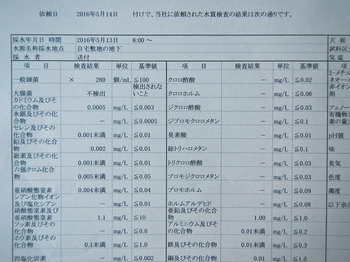 依頼日 2016年5月14日 付けで、当社に依頼された水質検査の結果は次の通りです。
採水年月日 時間 2016年5月13日 8:00 ～ 天候
水源名称採水地点 自宅敷地の地下
採水者 送付 気温
項 目 検査結果 単位 基準値 項 目 検査結果 単位 基準値 項
一般細菌 × 280 個/mL ≦100 クロロ酢酸 － mg/L ≦0.02
大腸菌 不検出 検出されないこと クロロホルム － mg/L ≦0.06
カドミウム及びその化合物 0.0005 mg/L ≦0.003 ジクロロ酢酸 － mg/L
水銀及びその化合物 － mg/L ジブロモクロロメタン － mg/L ≦0.1
セレン及びその化合物 0.001未満 mg/L ≦0.01 臭素酸 － mg/L ≦0.01 pH値
鉛及びその化合物 0.002 mg/L ≦0.01 総トリハロメタン － mg/L ≦0.1 味
砒素及びその化合物 0.001未満 mg/L ≦0.01 トリクロロ酢酸 － mg/L 臭気
六価クロム化合物 0.005未満 mg/L ≦0.05 ブロモジクロロメタン － mg/L ≦0.03 色度
亜硝酸態窒素 0.004未満 mg/L ≦0.04 ブロモホルム － mg/L ≦0.09 濁度
シアン化物イオン及び塩化シアン － mg/L ≦0.01 ホルムアルデヒド － mg/L ≦0.08
硝酸態窒素及び亜硝酸態窒素 1.1 mg/L ≦10 亜鉛及びその化合物 1.00 mg/L ≦1.0
フッ素及びその化合物 － mg/L ≦0.8 アルミニウム及びその化合物 0.01未満 mg/L ≦0.2
ホウ素及びその化合物 0.1未満 mg/L ≦1.0 鉄及びその化合物 0.01未満 mg/L ≦0.3
四塩化炭素 － mg/L ≦0.002 銅及びその化合物 0.01 mg/L